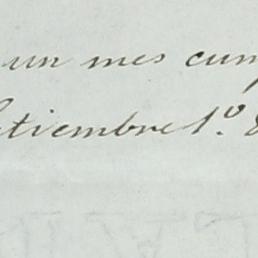 un mes cum
Setiembre 1º